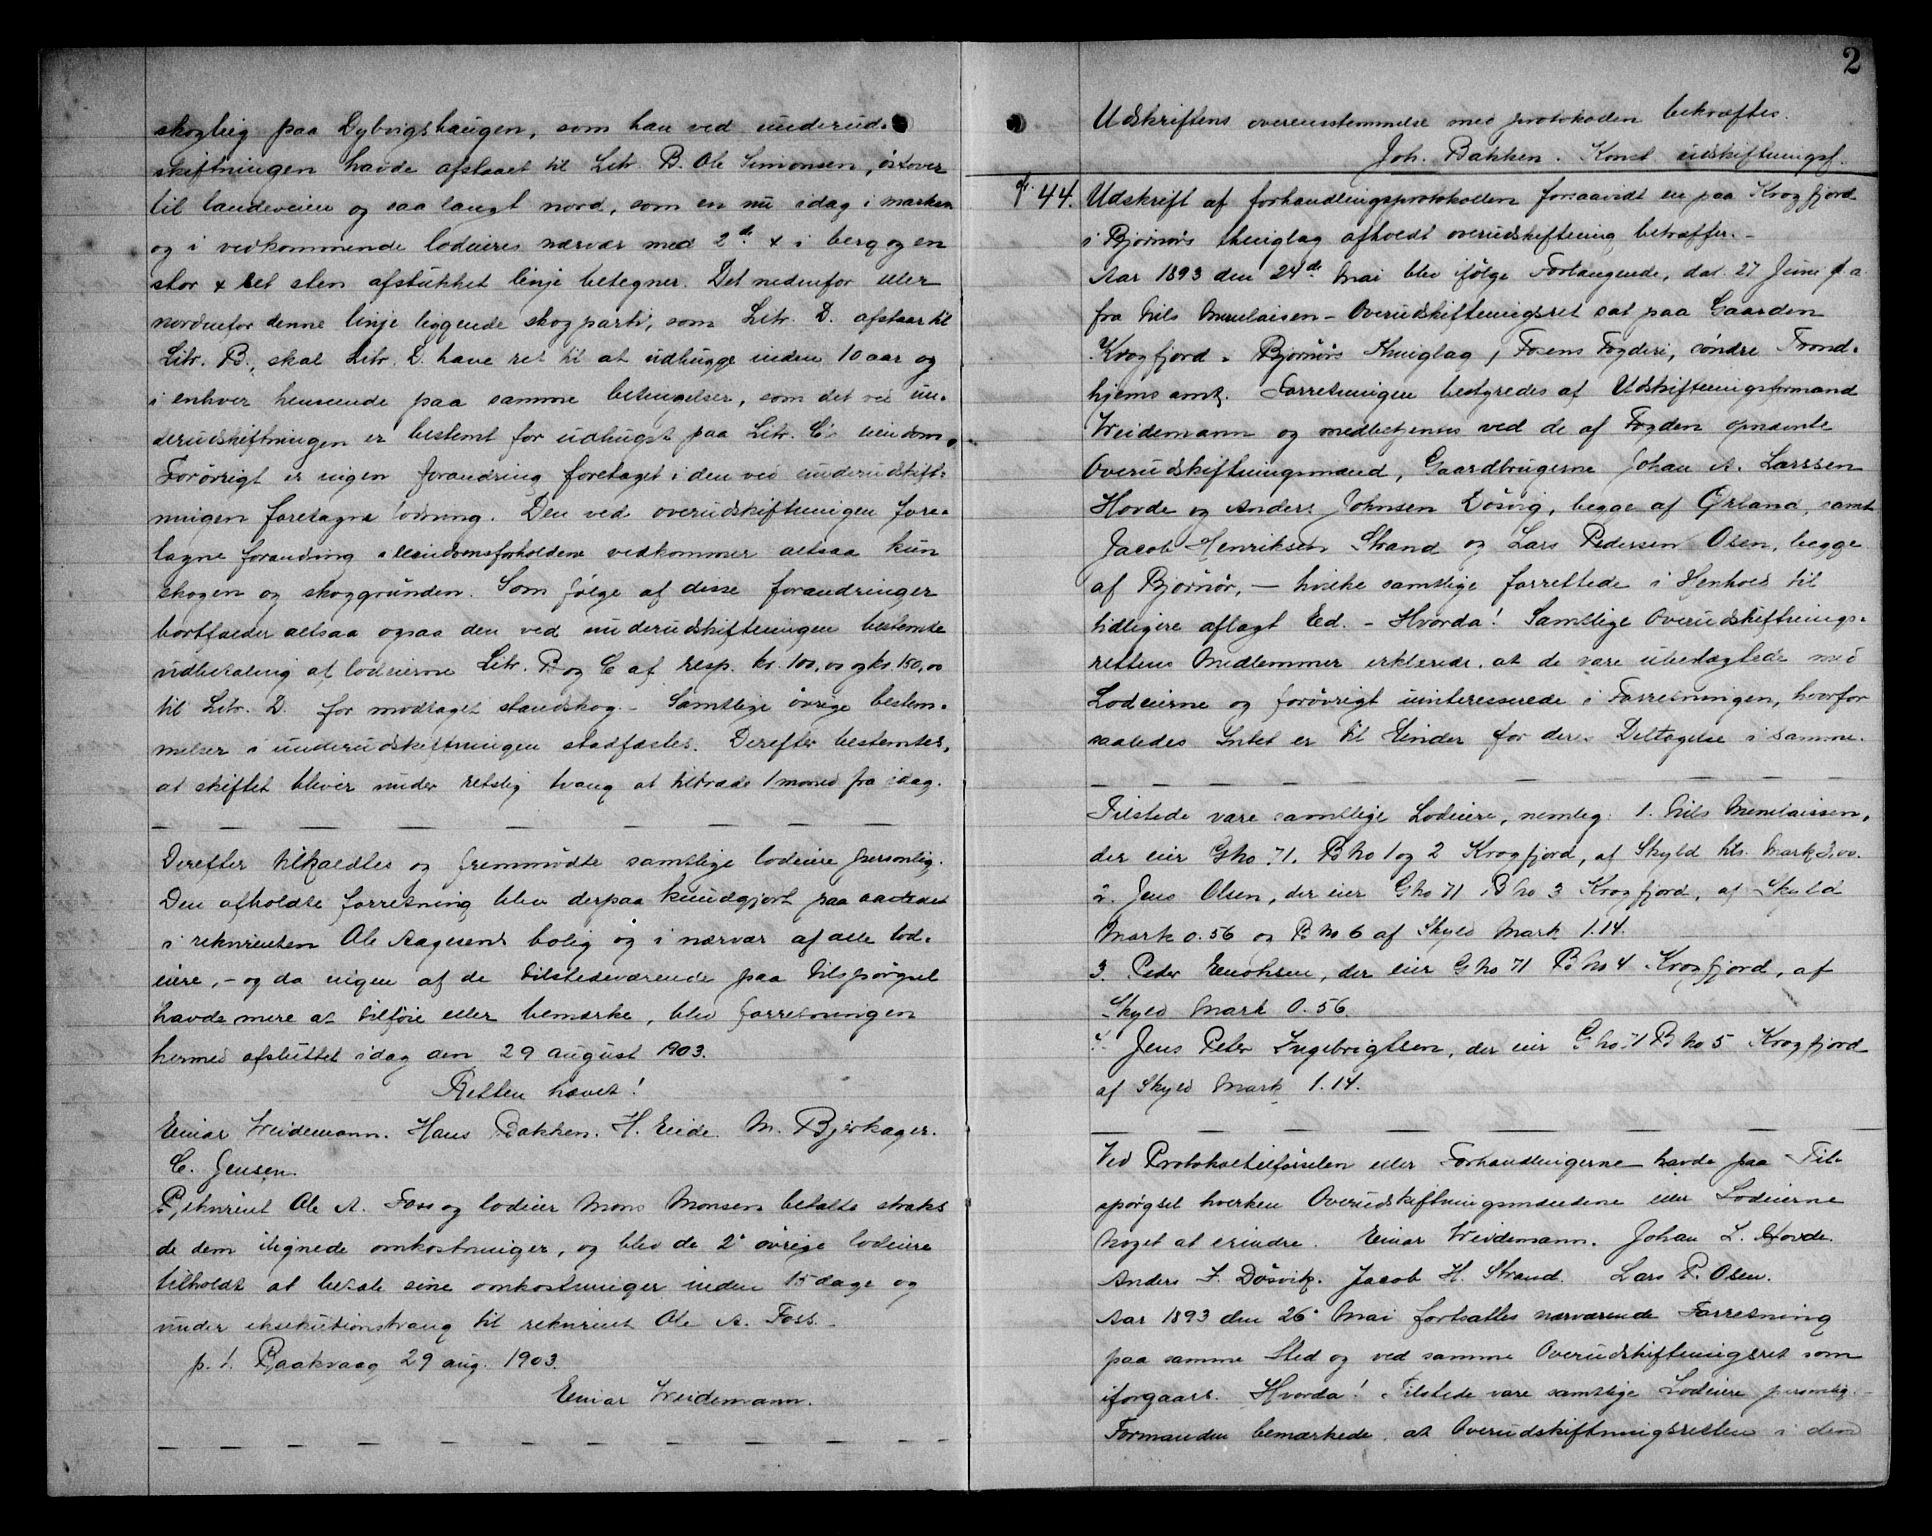 skogteig paa Dybvigshaugen, som han ved underud-
skiftningen havde afstaaet til Litr. B. Ole Simonsen, østover
til landeveien og saa langt nord, som en nu idag i marken
og i vedkommende lodeieres nærvær med 2de x i berg og en
stor x set sten afstukket linje betegner. Det nedenfor eller
nordenfor denne linje liggende skogparti, som Litr. D. afstaar til
Litr. B., skal Litr. D have ret til at udhugge inden 10 aar og
i enhver henseende paa samme betingelser, som det ved un-
derudskiftningen er bestemt for udhugst paa Litr. C's eiendom.
Forøvrigt er ingen forandring foretaget i den ved underudskift-
ningen foretagne lodning. Den ved overudskiftningen fore-
tagne forandring i eiendomsforholdene vedkommer altsaa kun
skogen og skoggrunden. Som følge af disse forandringer
bortfalder altsaa ogsaa den ved underudskiftningen bestemte
udbetaling af lodeierne Litr. B og C af resp. kr. 100,00 og kr. 150,00
til Litr. D. for modtaget standskog. - Samtlige øvrige bestem-
melser i underudskiftningen stadfæstes. Derefter bestemtes,
at skiftet bliver under retslig tvang at tiltræde 1 moned fra idag.
Derefter tilkaldtes og fremmødte samtlige lodeiere personlig.
Den afholdte forretning blev derpaa kundgjort paa aastedet
i rekvirenten Ole Aagesens bolig og i nærvær af alle lod-
eiere, - og da ingen af de tilstedeværende paa tilspørgsel
havde mere at tilføie eller bemærke, blev forretningen
hermed afsluttet idag den 29 august 1903.
Retten hævet!
Einar Weidemann. Hans Bakken. H. Eide. M. Bjerkager.
C. Jensen.
Rekvirent Ole A. Foss og lodeier Mons Monsen betalte straks
de dem ilignede omkostninger, og blev de 2de øvrige lodeiere
tilholdt at betale sine omkostninger inden 15 dage og
under eksekutionstvang til rekvirent Ole A. Foss. -
p. t. Baakvaag 29 aug. 1903.
Einar Weidemann.
2
Udskriftens overensstemmelse med protokollen bekræftes.
Joh. Bakken. Konst. udskiftningsf.
44. Udskrift af forhandlingsprotokollen forsaavidt en paa Krogfjord
i Bjørnørs thinglag afholdt overudskiftning betræffer. -
Aar 1893 den 24de Mai blev ifølge Forlangende, dat. 27 Juni f. a.
fra Nils Menelaisen - Overudskiftningsret sat paa Gaarden
Krogfjord i Bjørnørs Thinglag, Fosens Fogderi, søndre Trond-
hjems amt. Forretningen bestyredes af Udskiftningsformand
Weidemann og medbetjenes ved de af Fogden opnævnte
Overudskiftningsmænd, Gaardbrugerne Johan A. Larssen
Hovde og Anders Johnsen Døsvig, begge af Ørland, samt
Jacob Henriksen Strand og Lars Pedersen Olsen, begge
af Bjørnør, - hvilke samtlige forrettede i Henhold til
tidligere aflagt Ed. - Hvorda! Samtlige Overudskiftnings-
rettens Medlemmer erklærede, at de vare ubeslægtede med
Lodeierne og forøvrigt uinteresserede i Forretningen, hvorfor
saaledes Intet er til Hinder for deres Deltagelse i samme.
Tilstede vare samtlige Lodeiere, nemlig: 1. Nils Menelaissen,
der eier Gno. 71. Bno 1 og 2 Krogfjord, af Skyld tils. Mark
2. Jens Olsen, der eier Gno 71 Bno 3 Krogfjord, af Skyld
Mark 0.56 og Bno 6 af Skyld Mark 1.14.
3. Peder Enochsen, der eier Gno 71 Bno 4 Krogfjord, af
Skyld Mark 0.56
4. Jens Peter Ingebrigtsen, der eier Gno 71 Bno 5 Krogfjord
af Skyld Mark 1.14.
Ved Protokoltilførselen eller Forhandlingerne havde paa Til-
spørgsel hverken Overudskiftningsmændene eller Lodeierne
Noget at erindre. Einar Weidemann. Johan L. Hovde.
Anders J. Døsvik. Jacob H. Strand. Lars P. Olsen.
Aar 1893 den 26de Mai fortsattes nærværende Forretning
paa samme Sted og ved samme Overudskiftningsret som
iforgaars. Hvorda! Tilstede vare samtlige Lodeiere personlig. -
Formanden bemærkede, at Overudskiftningsretten i den